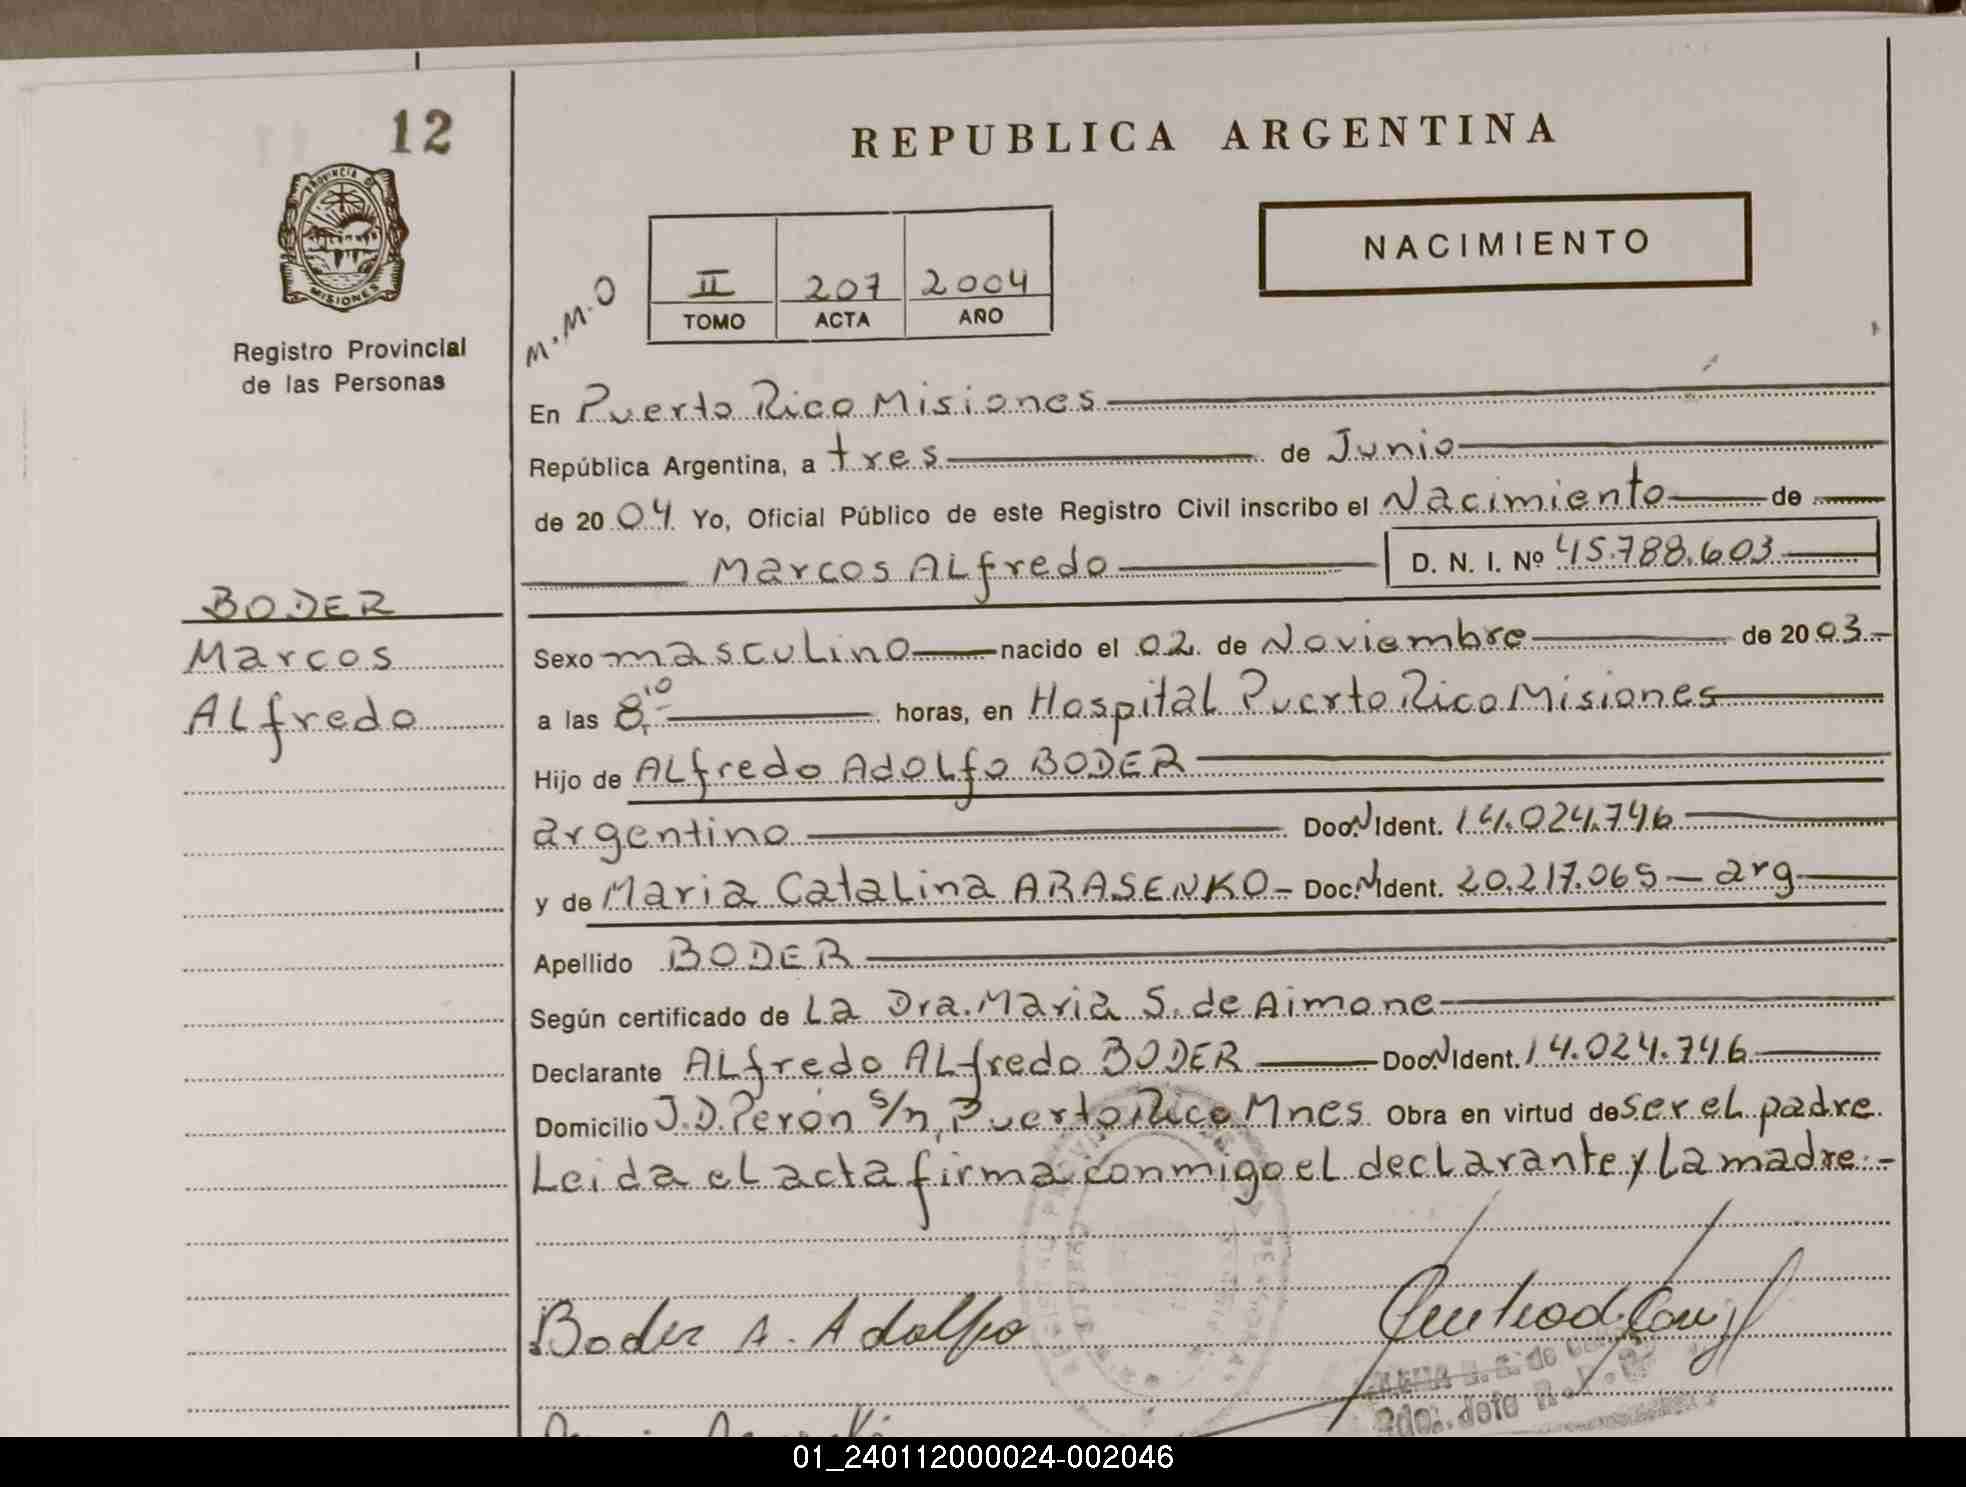 12
REPUBLICA ARGENTINA
PROVINCIA DE
MISIONES
Registro Provincial
de las Personas
NACIMIENTO
M.M.O
II 207 2004
TOMO ACTA AÑO
En Puerto Rico Misiones
República Argentina, a tres de Junio
de 2004 Yo, Oficial Público de este Registro Civil inscribo el Nacimiento de
Marcos Alfredo D. N. I. Nº 45.788.603
BODER
Marcos
Alfredo
Sexo masculino nacido el 02 de Noviembre de 2003.-
a las 8,10 horas, en Hospital Puerto Rico Misiones
Hijo de Alfredo Adolfo BODER
argentino Doc.N Ident. 14.024.746
y de Maria Catalina ARASENKO - Doc.N Ident. 20.217.065 - arg
Apellido BODER
Según certificado de La Dra. Maria S. de Aimone
Declarante Alfredo Alfredo BODER Doc.N Ident. 14.024.746
Domicilio J.D. Perón s/n, Puerto Rico Mnes Obra en virtud de ser el padre.
Leida el acta firma conmigo el declarante y la madre.-
Boder A. Adolfo
01_240112000024-002046